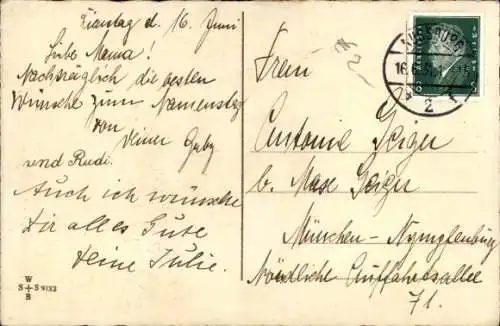 Dienstag d. 16. Juni
Liebe Mama!
Nachträglich die besten
Wünsche zum Namenstag
von
Deiner Gaby
und Rudi.
Auch ich wünsche
Dir alles Gute
Deine Julie.
W
S + S 9133
B
Frau
Antonie Geiger
b. Max Geiger
München-Nymphenburg
Nördliche Auffahrtsallee
71.
AUGSBURG
16.6.31.
2